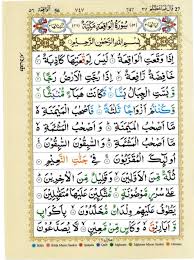 ٧٤٧
سُوْرَةُ الْوَاقِعَةِ مَكِّيَّةٌ
بِسْمِ اللّٰهِ الرَّحْمٰنِ الرَّحِيْمِ
اِذَا وَقَعَتِ الْوَاقِعَةُ لَيْسَ لِوَقْعَتِهَا كَاذِبَةٌ
خَافِضَةٌ رَّافِعَةٌ اِذَا رُجَّتِ الْاَرْضُ رَجًّا
وَّبُسَّتِ الْجِبَالُ بَسًّا فَكَانَتْ هَبَآءً مُّنْۢبَثًّا
وَّكُنْتُمْ اَزْوَاجًا ثَلٰثَةً فَاَصْحٰبُ الْمَيْمَنَةِ
مَاۤ اَصْحٰبُ الْمَيْمَنَةِ وَاَصْحٰبُ الْمَشْـَٔمَةِ
مَاۤ اَصْحٰبُ الْمَشْـَٔمَةِ وَالسّٰبِقُوْنَ السّٰبِقُوْنَ
اُولٰٓئِكَ الْمُقَرَّبُوْنَ فِيْ جَنّٰتِ النَّعِيْمِ
ثُلَّةٌ مِّنَ الْاَوَّلِيْنَ وَقَلِيْلٌ مِّنَ الْاٰخِرِيْنَ عَلٰى
سُرُرٍ مَّوْضُوْنَةٍ مُّتَّكِـِٕيْنَ عَلَيْهَا مُتَقٰبِلِيْنَ
يَطُوْفُ عَلَيْهِمْ وِلْدَانٌ مُّخَلَّدُوْنَ بِاَكْوَابٍ
وَّاَبَارِيْقَ وَكَاْسٍ مِّنْ مَّعِيْنٍ لَّا يُصَدَّعُوْنَ